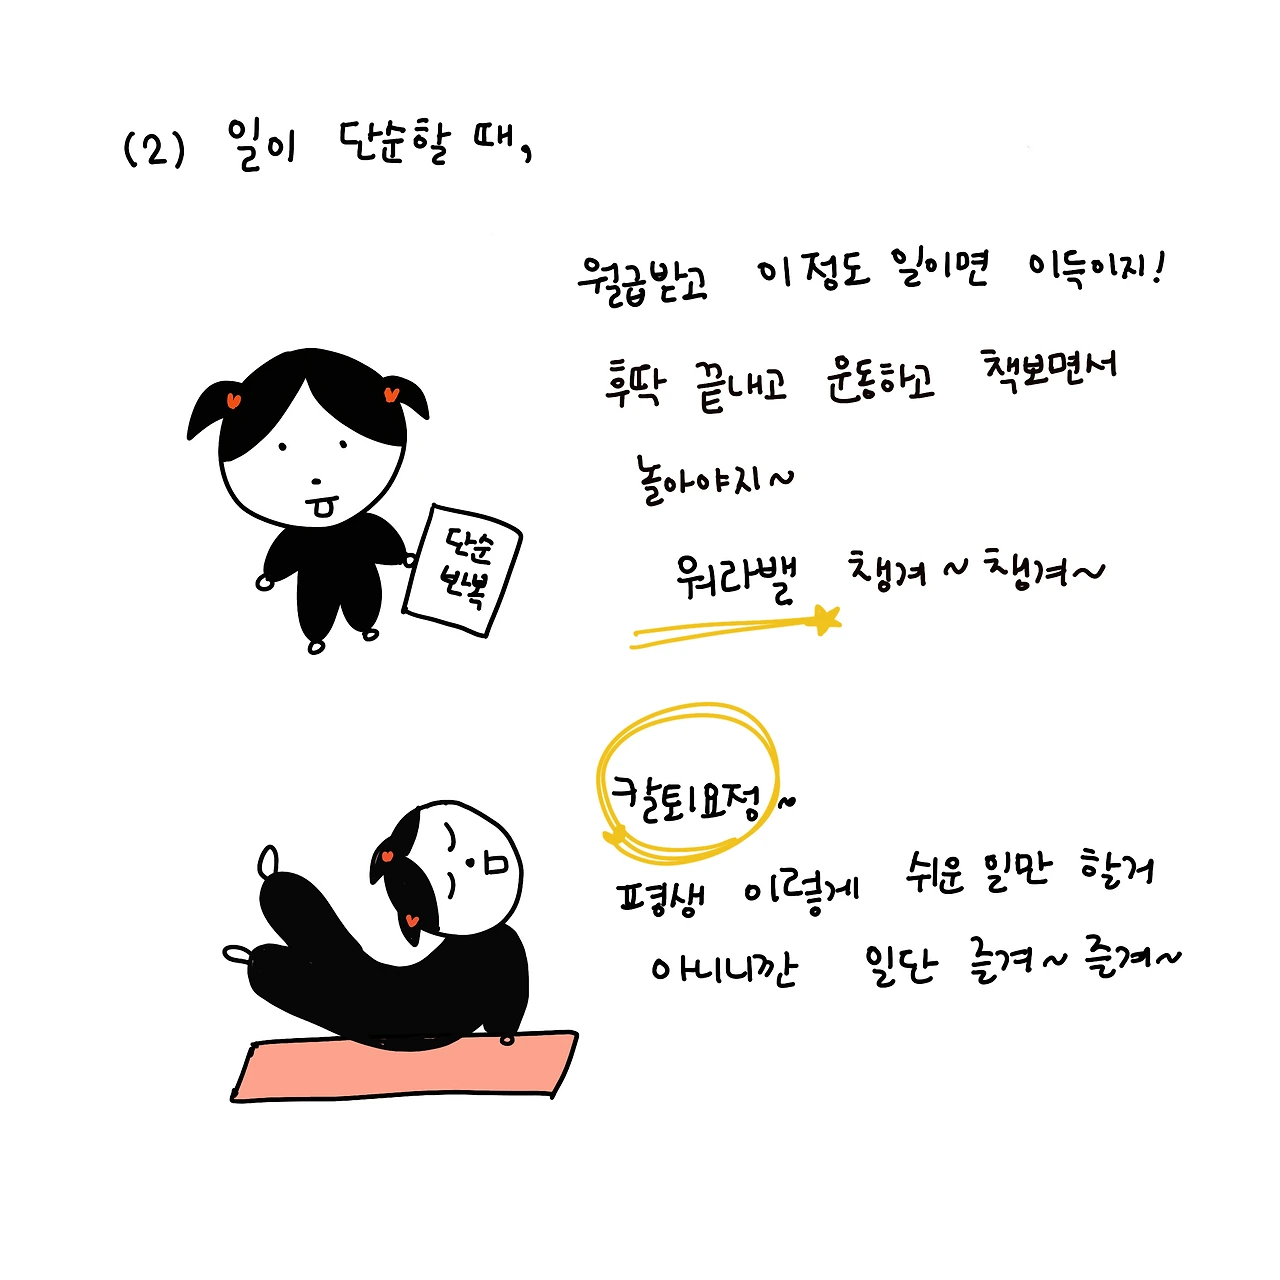 (2) 일이 단순할 때,
월급받고 이정도 일이면 이득이지!
후딱 끝내고 운동하고 책보면서
놀아야지~
단순
반복
워라밸 챙겨~ 챙겨~
칼퇴요정~
평생 이렇게 쉬운 일만 할거
아니니깐 일단 즐겨~ 즐겨~